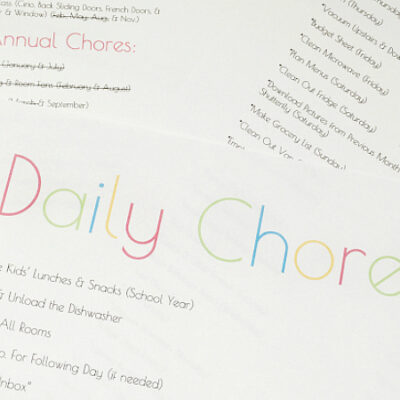 (Cirio, Back Sliding Doors, French Doors, &
& Window) (Feb, May, Aug, & Nov.)
Annual Chores:
(January & July)
& Room Fans (February & August)
(March & September)
(Thursday)
*Vacuum Upstairs & Do
*Budget Sheet (Friday)
*Clean Microwave (Friday)
*Plan Menus (Saturday)
*Clean Out Fridge (Saturday)
*Download Pictures from Previous Month
Shutterfly (Saturday)
*Make Grocery List (Sunday)
*Clean Out Van
Daily Chore
Kids' Lunches & Snacks (School Year)
& Unload the Dishwasher
All Rooms
For Following Day (if needed)
Inbox"